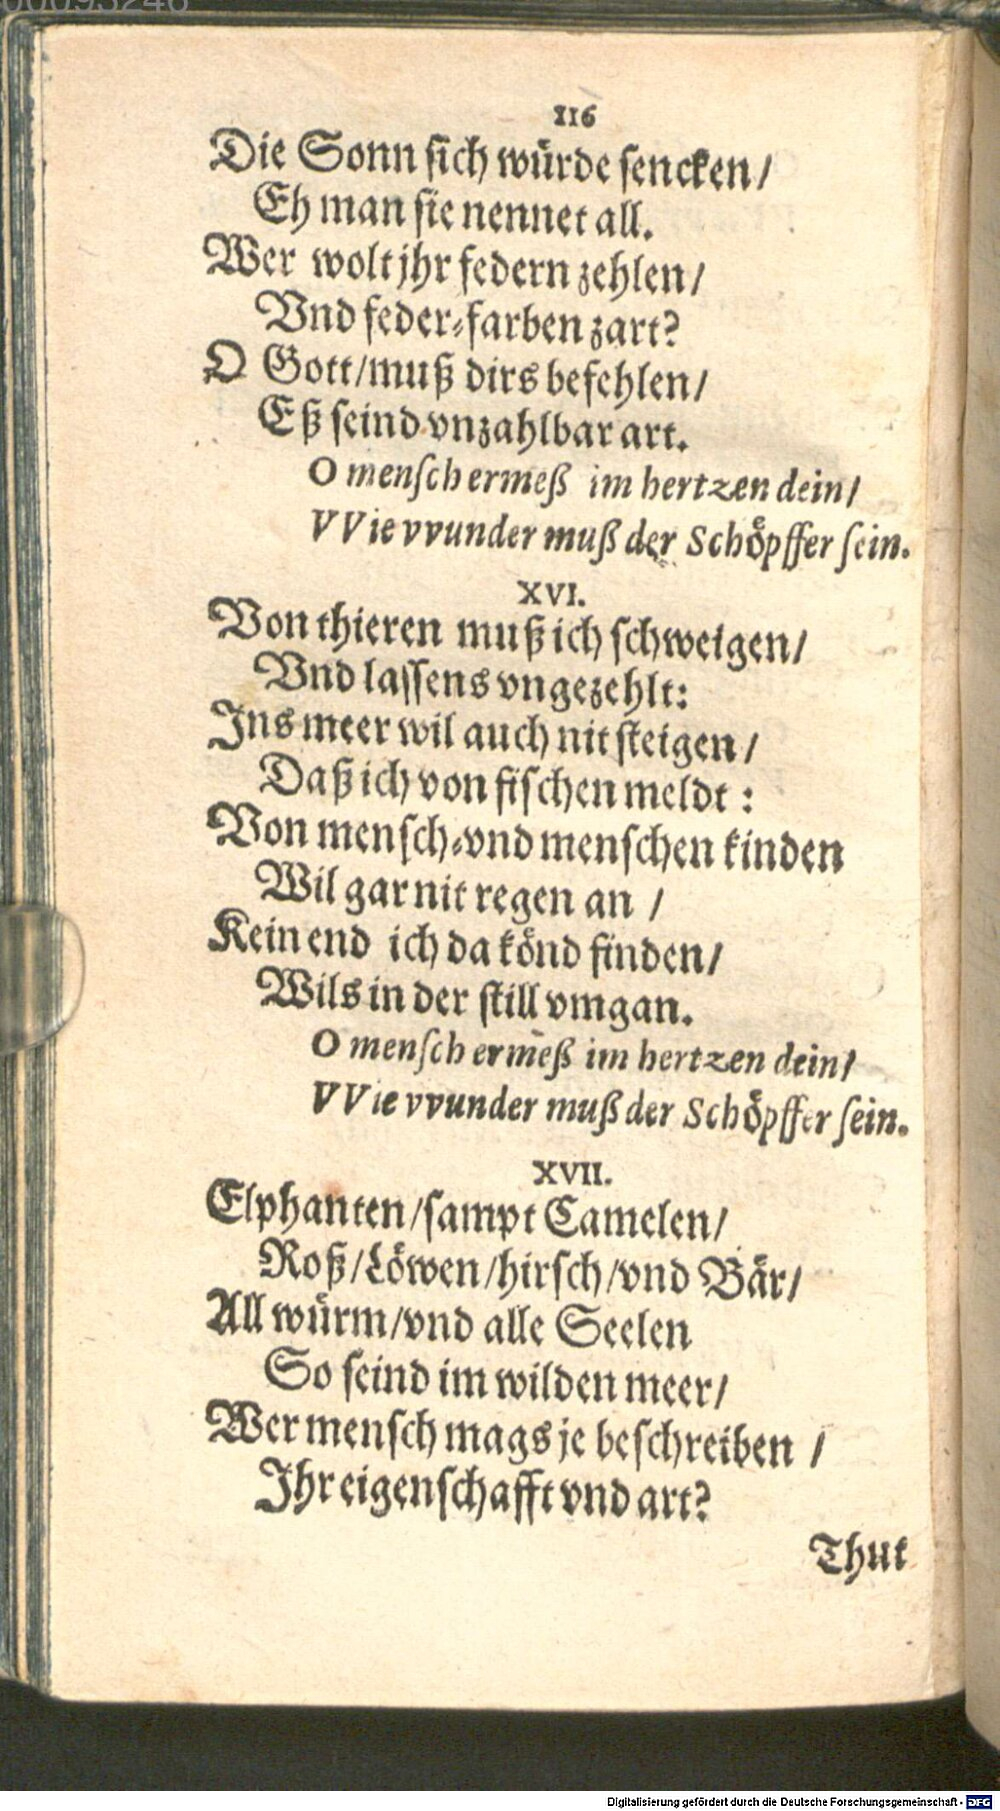 116
Die Sonn sich würde sencken/
Eh man sie nennet all.
Wer wolt jhr federn zehlen/
Vnd feder-farben zart?
O Gott/muß dirs befehlen/
Eß seind vnzahlbar art.
O mensch ermeß im hertzen dein/
VVie vvunder muß der Schöpffer sein.
XVI.
Von thieren muß ich schweigen/
Vnd lassens vngezehlt:
Ins meer wil auch nit steigen/
Daß ich von fischen meldt:
Von mensch-vnd menschen kinden
Wil gar nit regen an/
Kein end ich da könd finden/
Wils in der still vmgan.
O mensch ermeß im hertzen dein/
VVie vvunder muß der Schöpffer sein.
XVII.
Elphanten/sampt Camelen/
Roß/Löwen/hirsch/vnd Bär/
All würm/vnd alle Seelen
So seind im wilden meer/
Wer mensch mags je beschreiben/
Ihr eigenschafft vnd art?
Thut
Digitalisierung gefördert durch die Deutsche Forschungsgemeinschaft - DFG